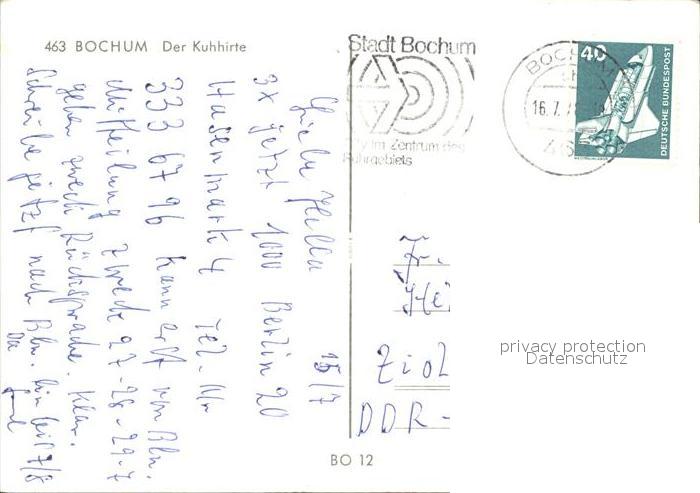 463 BOCHUM Der Kuhhirte
Stadt Bochum
im Zentrum des
Ruhrgebiets
BOCHUM
16.7.
463
40
DEUTSCHE BUNDESPOST
15/7
3x jetzt 1000 Berlin 20
Hasenmark 4 Tel. Nr
333 67 96 kann erst von Bln.
Mitteilung zwecks 27-28-29-7
geben zwecks Rücksprache. Klar.
Schreibe jetzt nach Bln. bin bis 7/8
da
Fr.
Hei
Ziol
DDR-
BO 12
privacy protection
Datenschutz